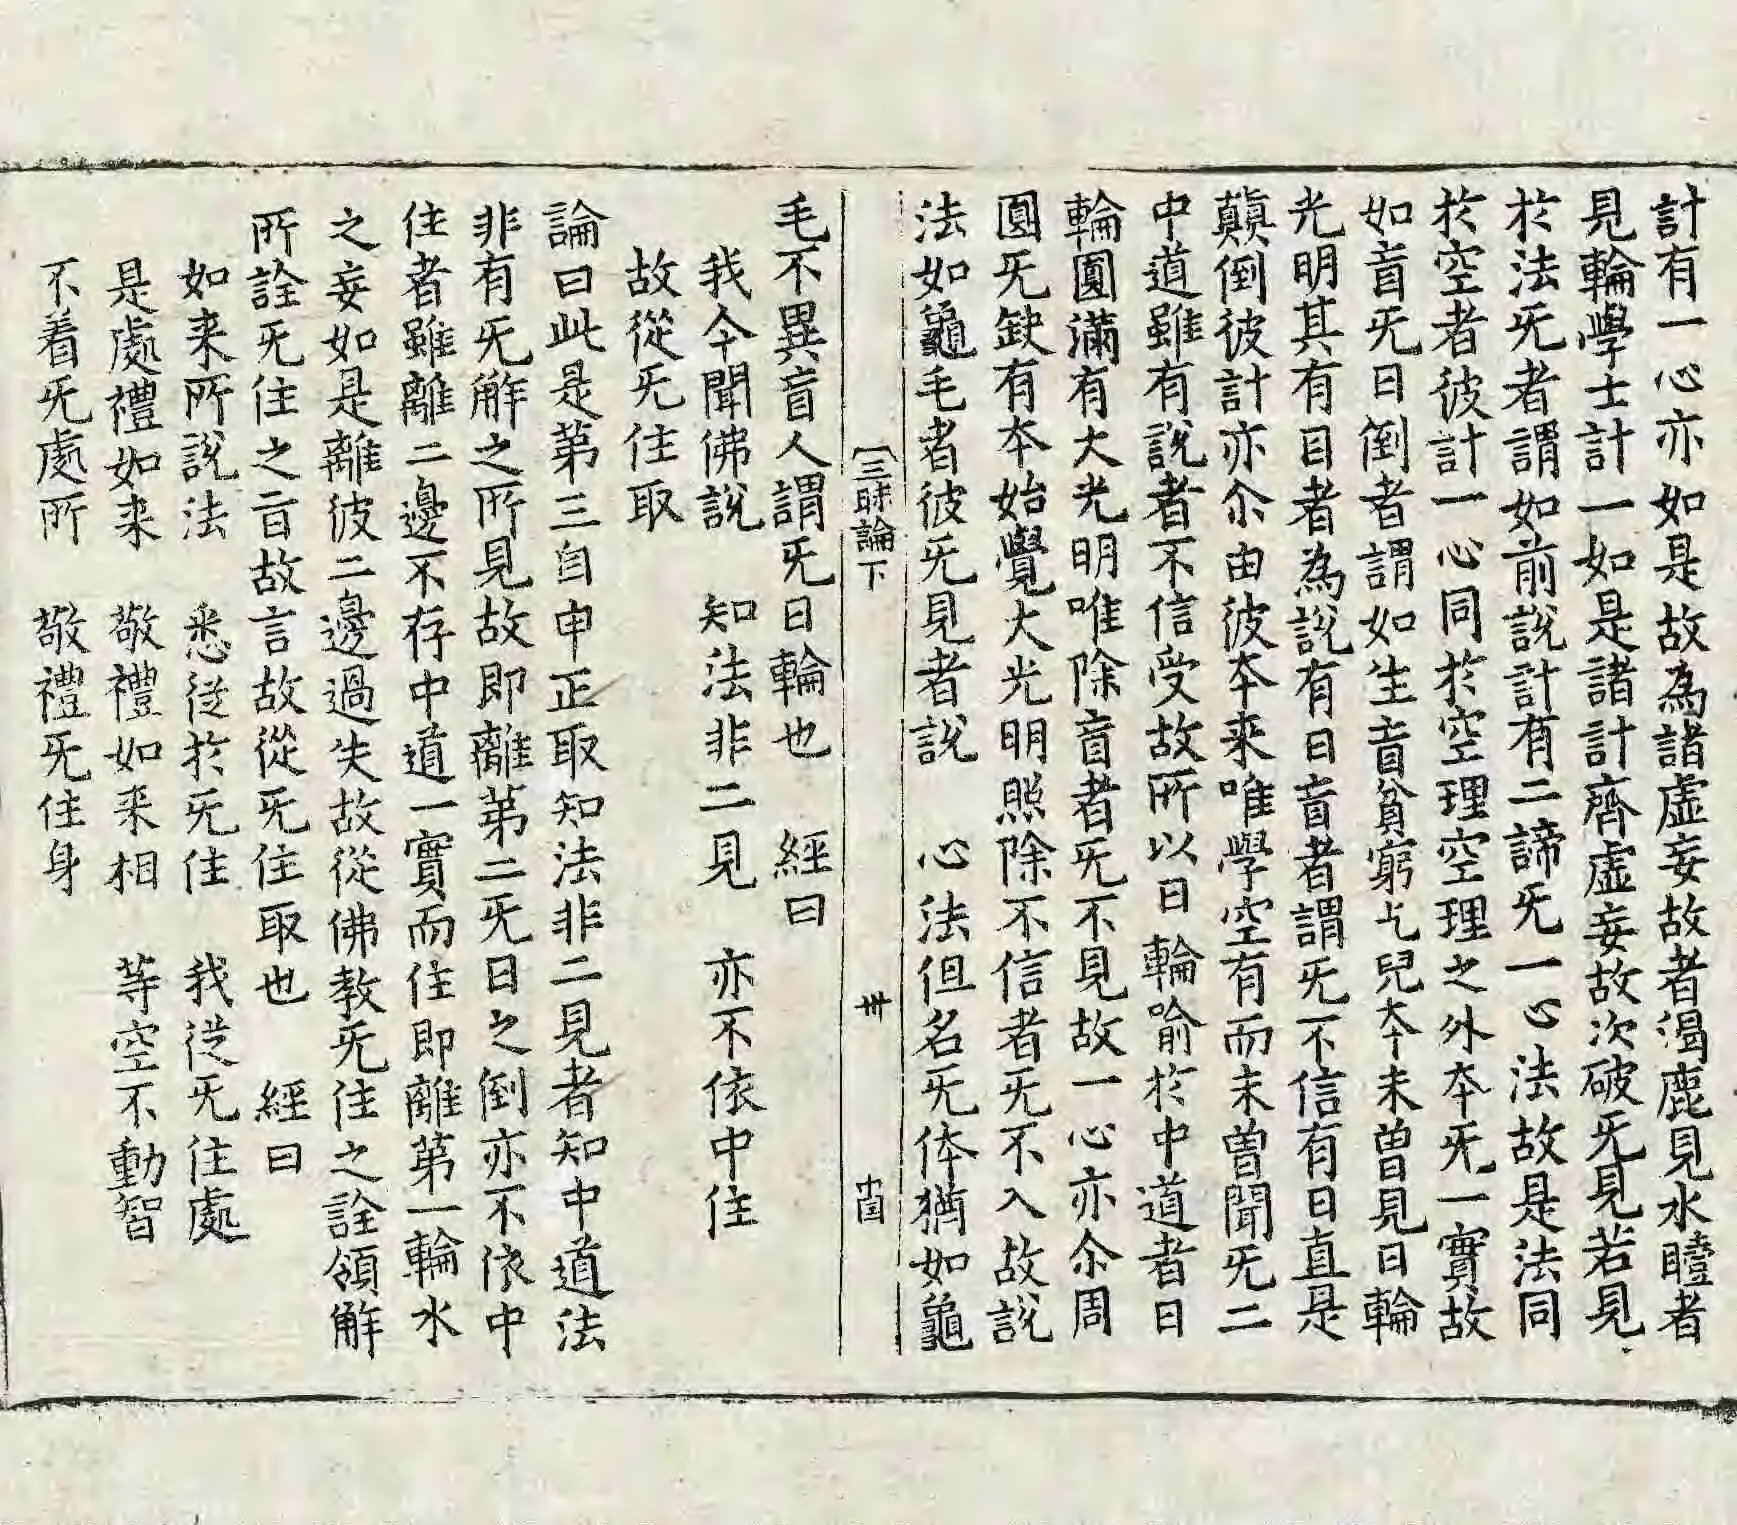 計有一心亦如是故為諸虛妄故者渴鹿見水瞪者
見輪學士計一如是諸計齊虛妄故次破旡見若見
於法旡者謂如前說計有二諦旡一心法故是法同
於空者彼計一心同於空理空理之外本旡一實故
如盲旡日倒者謂如生盲貧窮乞兒本未曽見日輪
光明其有目者為說有日盲者謂旡不信有日直是
顛倒彼計亦尒由彼本来唯學空有而未曽聞旡二
中道雖有說者不信受故所以日輪喻於中道者日
輪圓滿有大光明唯除盲者旡不見故一心亦尒周
圓旡缺有本始覺大光明照除不信者旡不入故說
法如龜毛者彼旡見者說 心法但名旡体猶如龜
三時論下 卅 十国
毛不異盲人謂旡日輪也 經曰
我今聞佛說 知法非二見 亦不依中住
故從旡住取
論曰此是第三自申正取知法非二見者知中道法
非有旡解之所見故即離第二旡日之倒亦不依中
住者雖離二邊不存中道一實而住即離第一輪水
之妄如是離彼二邊過失故從佛教旡住之詮領解
所詮旡住之旨故言故從旡住取也 經曰
如来所說法 悉從於旡住 我從旡住處
是處禮如来 敬禮如来相 等空不動智
不着旡處所 敬禮旡住身